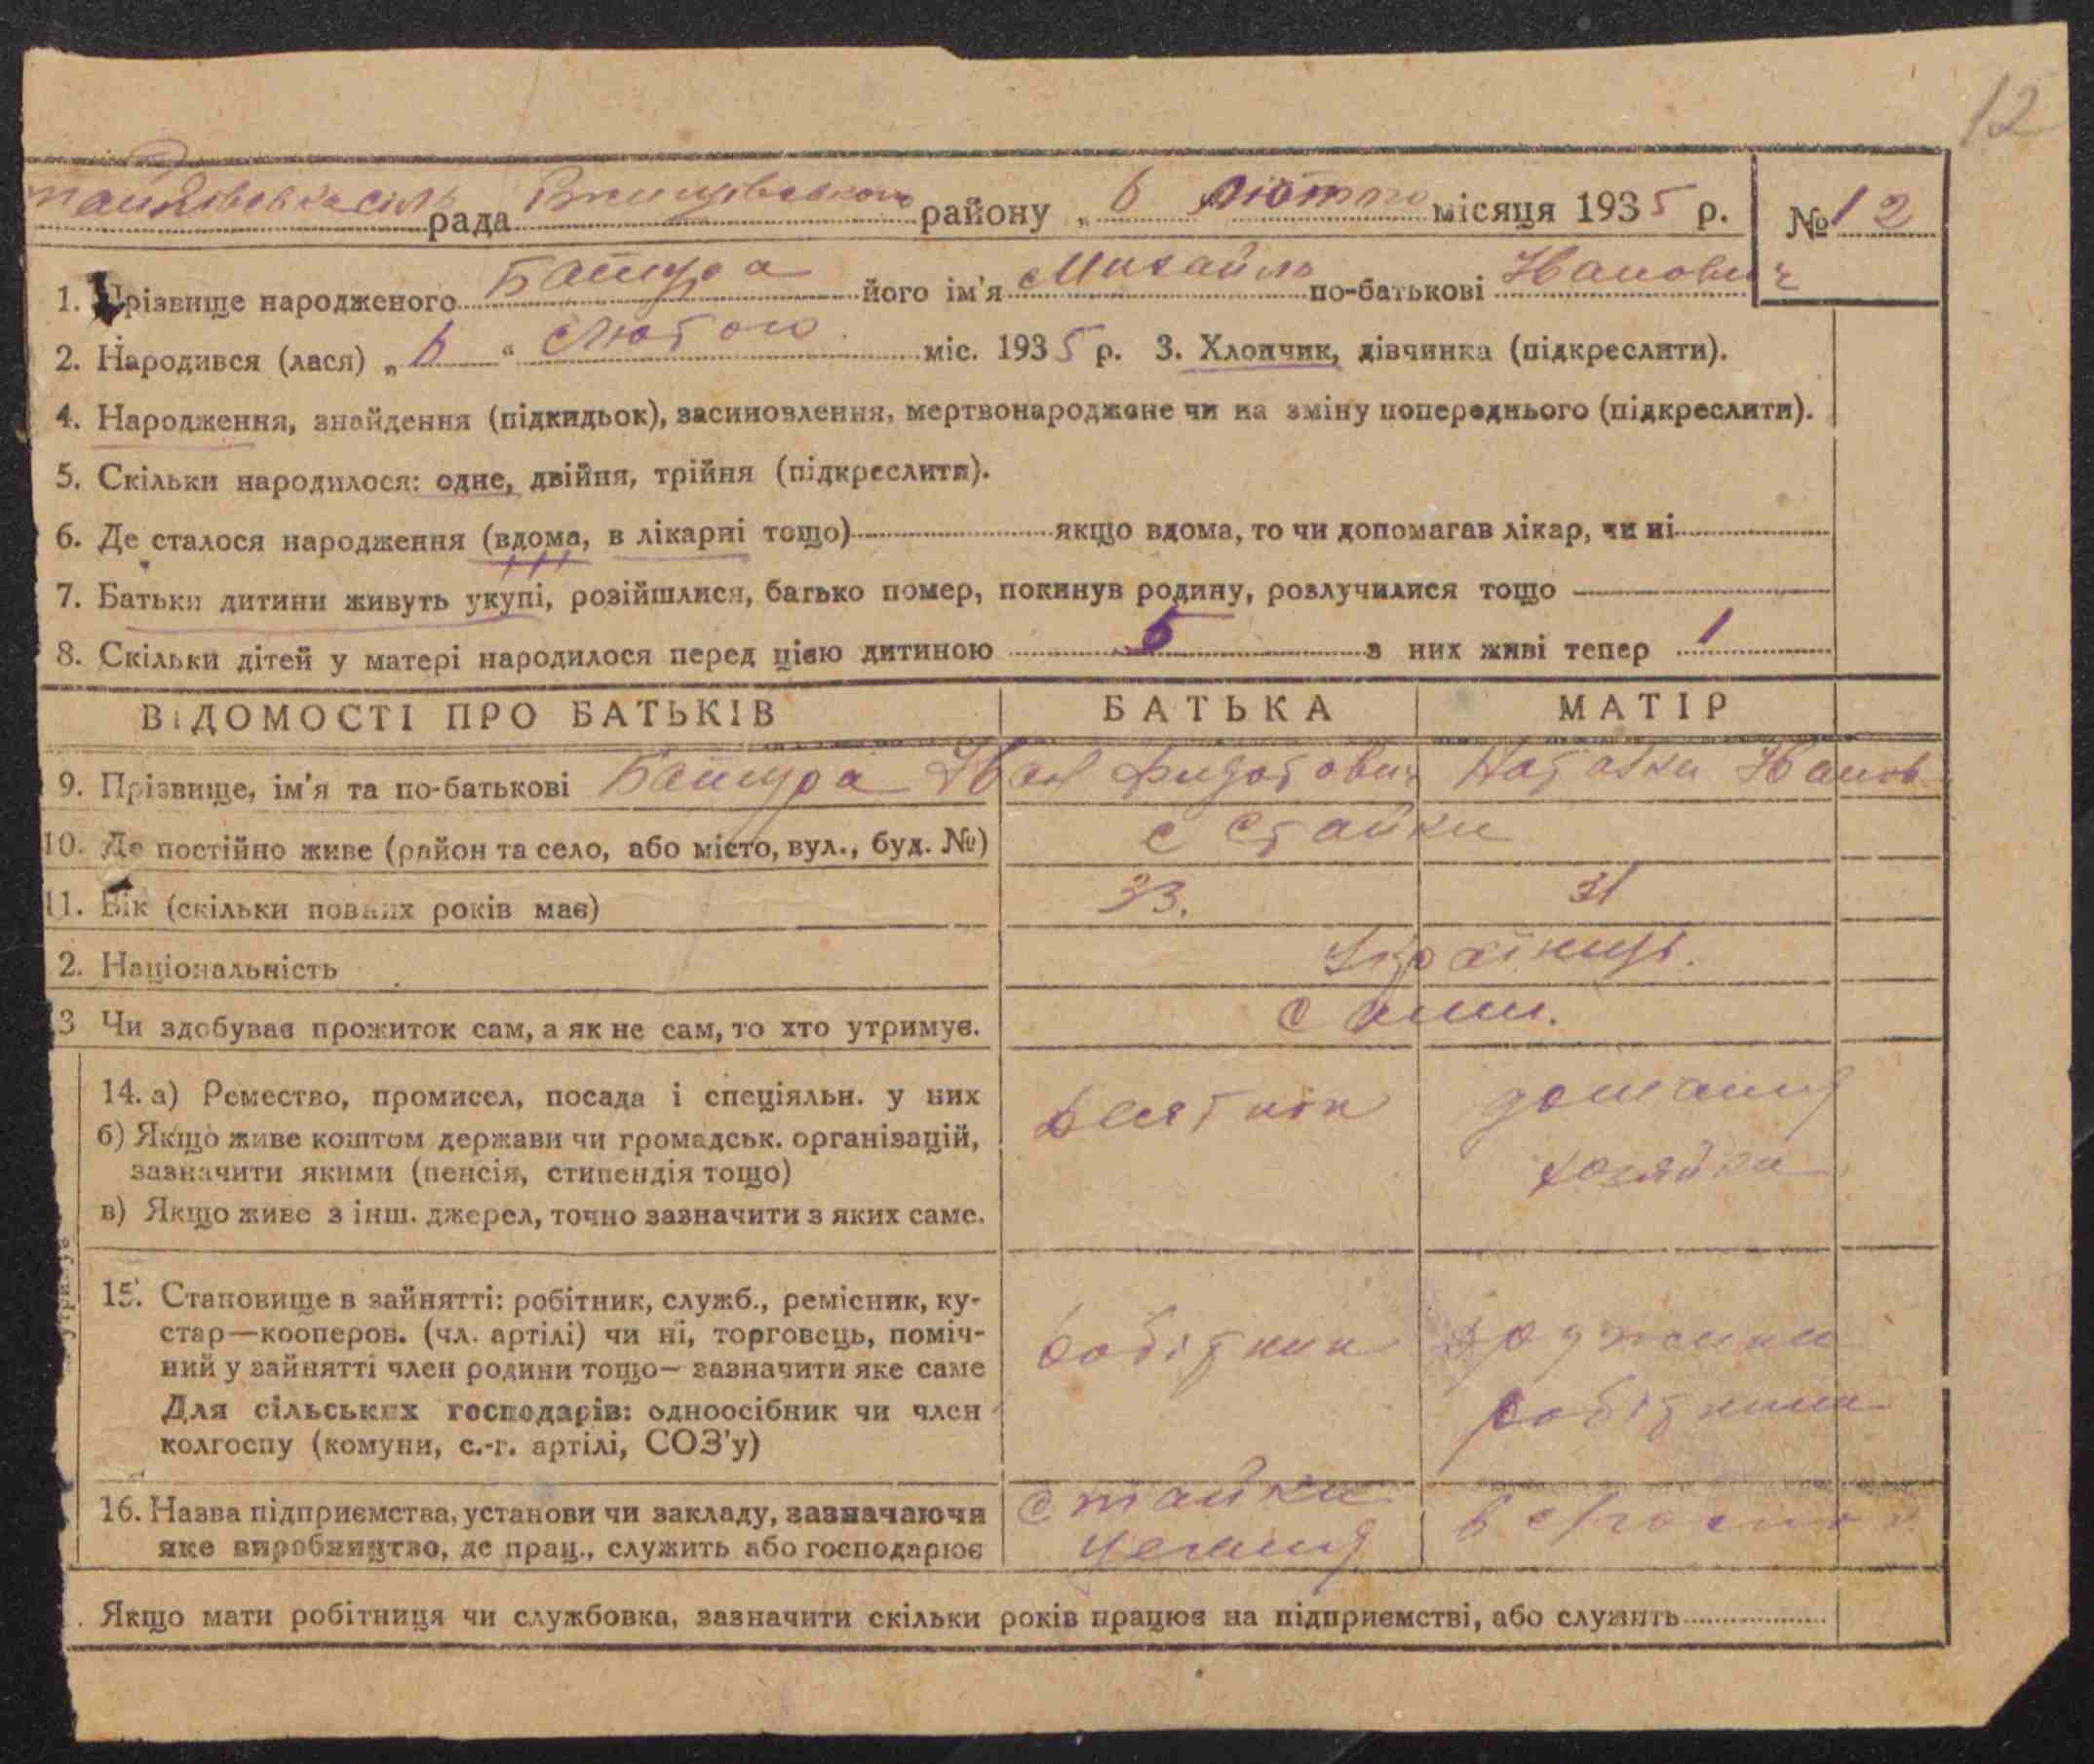 12
рада Ржищівського району „ 6 Лютого місяця 1935 р. № 12
1. Прізвище народженого Башура його ім'я Михайло по-батькові Іванович
2. Народився (лася) „ 6 “ Лютого міс. 1935 р. 3. Хлопчик, дівчинка (підкреслити).
4. Народження, знайдення (підкидьок), засиновлення, мертвонароджене чи на зміну попереднього (підкреслити).
5. Скільки народилося: одне, двійня, трійня (підкреслити).
6. Де сталося народження (вдома, в лікарні тощо) якщо вдома, то чи допомагав лікар, чи ні
7. Батьки дитини живуть укупі, розійшлися, батько помер, покинув родину, розлучилися тощо
8. Скільки дітей у матері народилося перед цією дитиною 5 з них живі тепер 1
ВІДОМОСТІ ПРО БАТЬКІВ БАТЬКА МАТІР
9. Прізвище, ім'я та по-батькові Башура Іван Наталка Іванов
10. Де постійно живе (район та село, або місто, вул., буд. №) с Стайки
11. Вік (скільки повних років має) 33. 31
2. Національність Українці.
3 Чи здобував прожиток сам, а як не сам, то хто утримує. сами.
14. а) Ремество, промисел, посада і спеціяльн. у них десятнік домашня
б) Якщо живе коштом держави чи громадськ. організацій,
зазначити якими (пенсія, стипендія тощо) хозяйка
в) Якщо живе з інш. джерел, точно зазначити з яких саме.
15. Становище в зайнятті: робітник, служб., ремісник, ку-
стар—кооперов. (чл. артілі) чи ні, торговець, поміч- робітник
ний у зайнятті член родини тощо— зазначити яке саме
Для сільських господарів: одноосібник чи член робітника
колгоспу (комуни, с.-г. артілі, СОЗ'у)
16. Назва підприємства, установи чи закладу, зазначаючи Стайки
яке виробництво, де прац., служить або господарює
Якщо мати робітниця чи службовка, зазначити скільки років працює на підприємстві, або служить